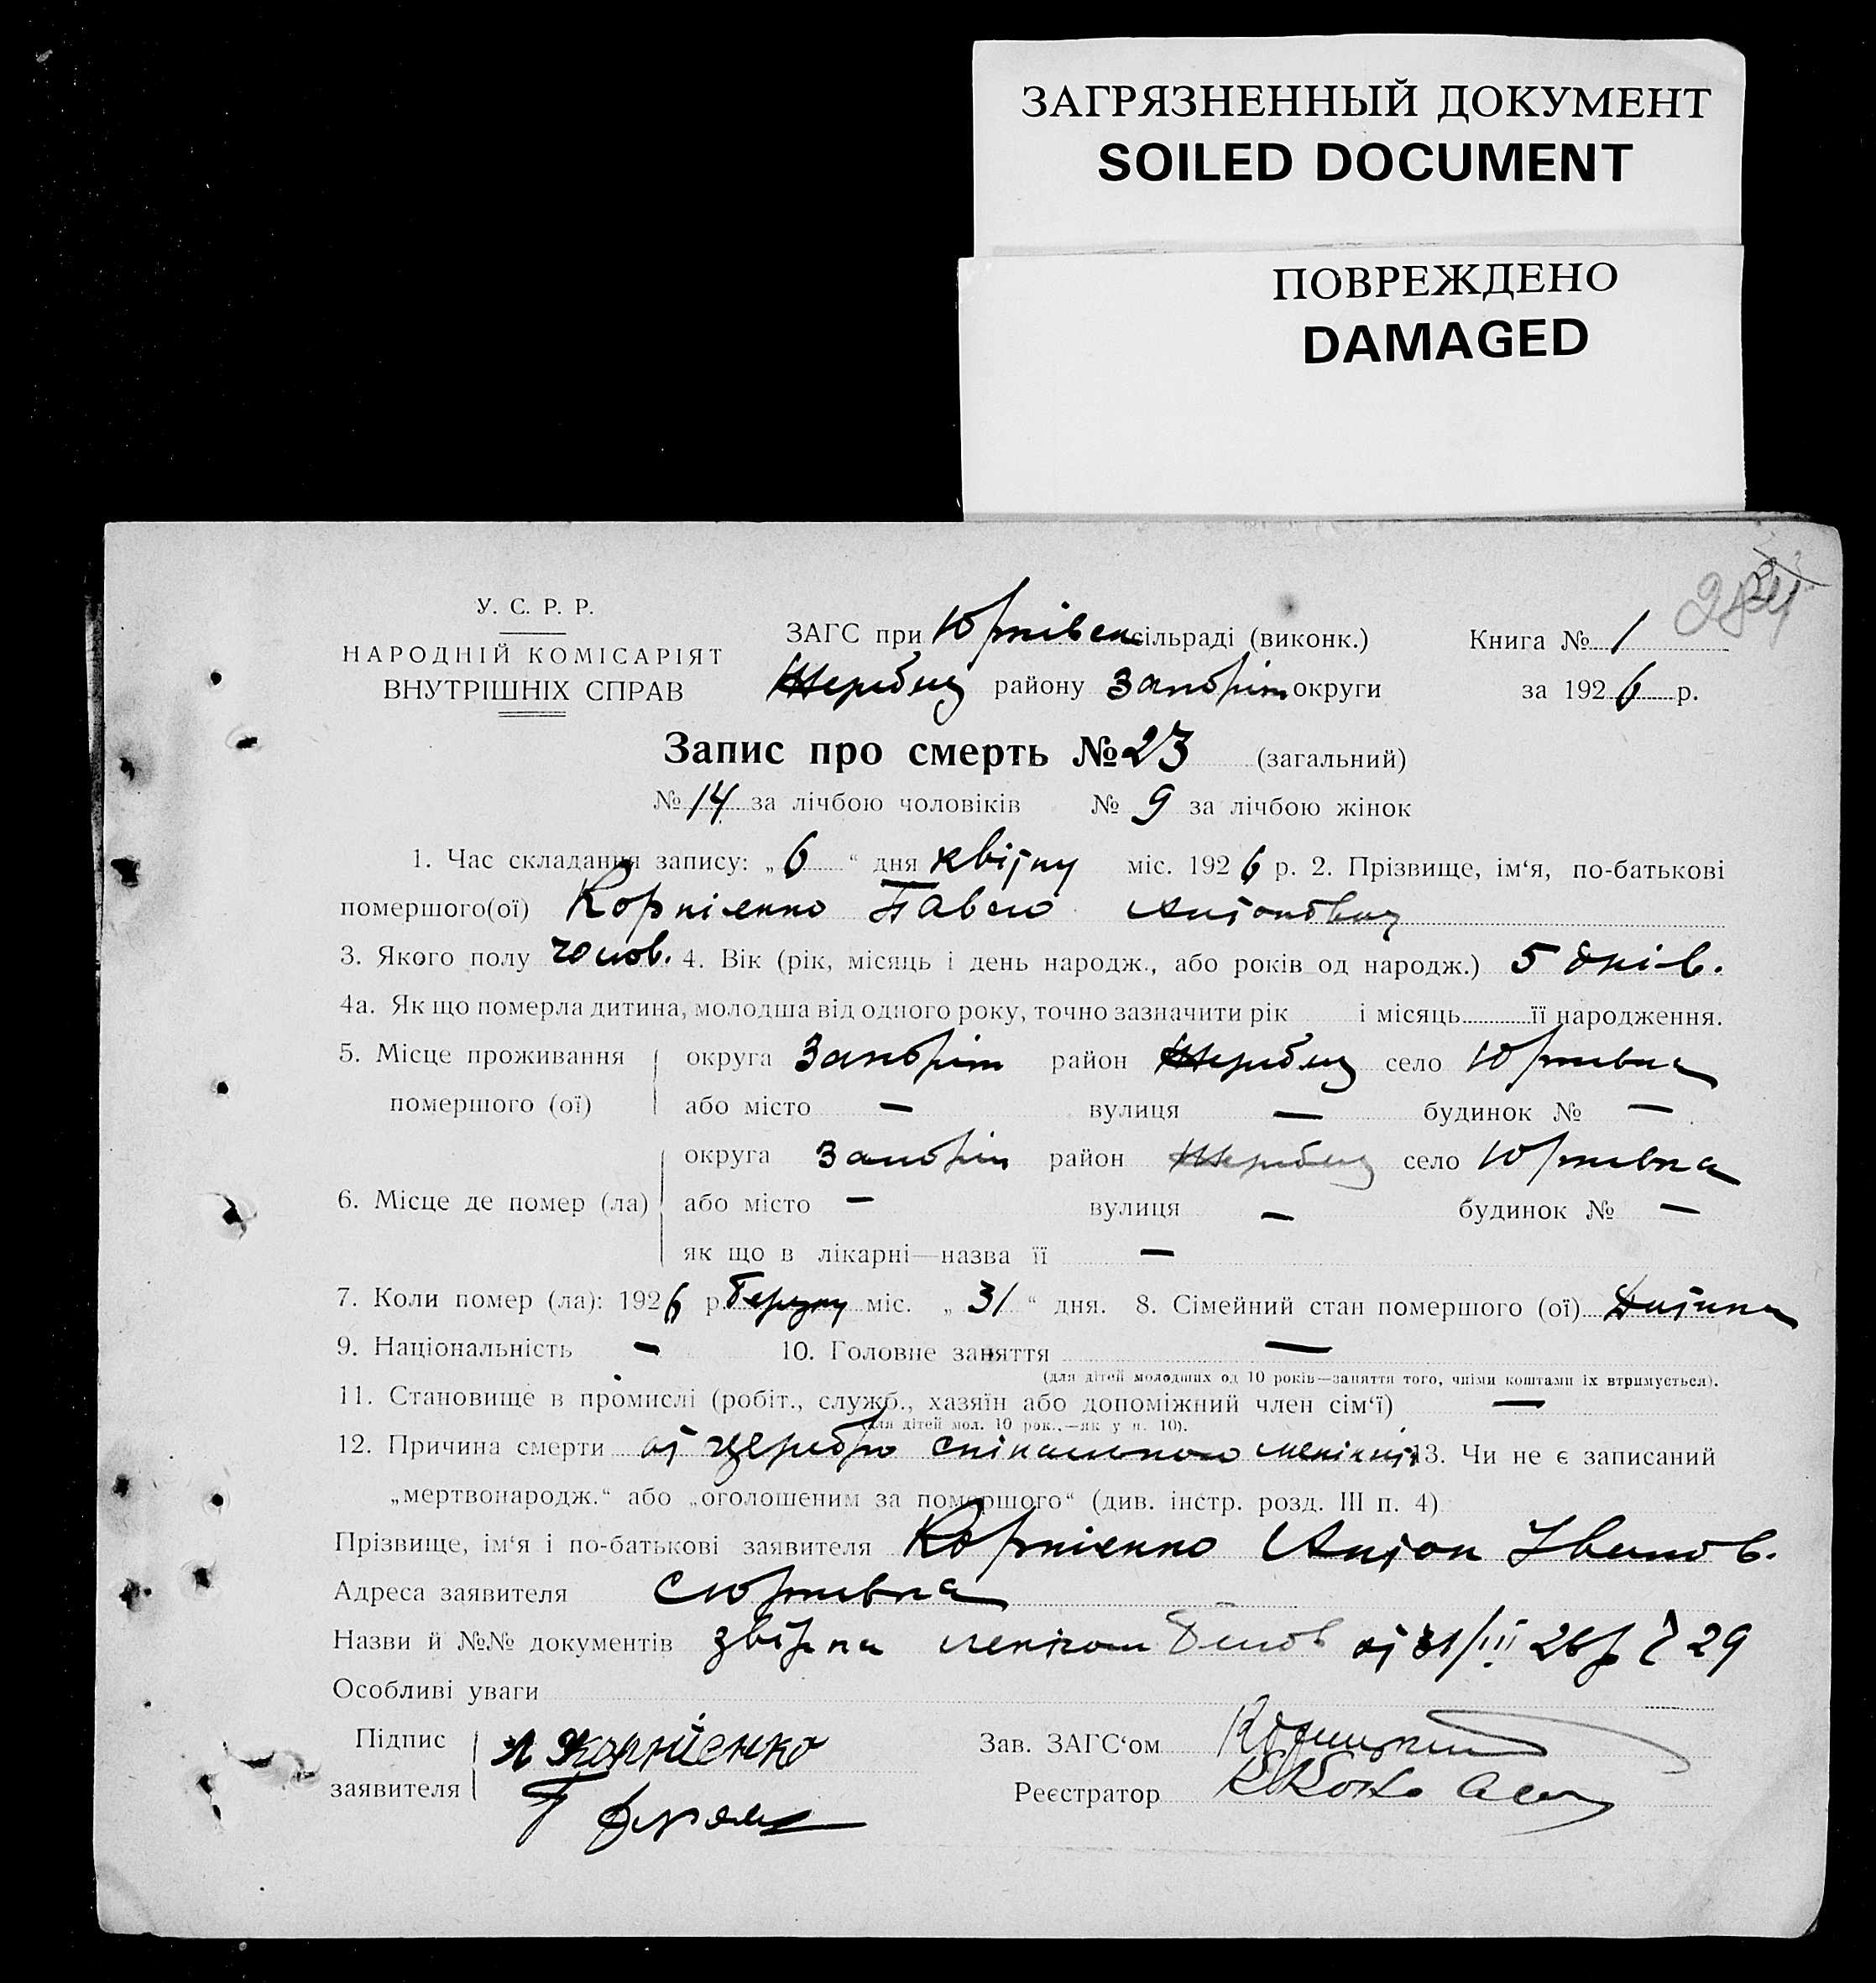 ЗАГРЯЗНЕННЫЙ ДОКУМЕНТ
SOILED DOCUMENT
ПОВРЕЖДЕНО
DAMAGED
284
У. С. Р. Р.
НАРОДНІЙ КОМІСАРІЯТ
ВНУТРІШНІХ СПРАВ
ЗАГС при Юрківськ сільраді (виконк.) Книга № 1
Жеребец району Запоріж округи за 1926 р.
Запис про смерть № 23 (загальний)
№ 14 за лічбою чоловіків № 9 за лічбою жінок
1. Час складання запису: „6“ дня квітня міс. 1926 р. 2. Прізвище, ім‘я, по-батькові
помершого(ої) Корнієнко Павло Антонович
3. Якого полу чолов. 4. Вік (рік, місяць і день народж., або років од народж.) 5 днів.
4а. Як що померла дитина, молодша від одного року, точно зазначити рік і місяць її народження.
5. Місце проживання округа Запоріж район Жеребец село Юрківка
помершого (ої) або місто — вулиця — будинок № —
округа Запоріж район Жеребец село Юрківка
6. Місце де помер (ла) або місто — вулиця — будинок № —
як що в лікарні—назва її —
7. Коли помер (ла): 1926 р. березня міс. „31“ дня. 8. Сімейний стан помершого (ої) Дитина
9. Національність — 10. Головне заняття —
(для дітей молодших од 10 років—заняття того, чиїми коштами їх втримується).
11. Становище в промислі (робіт., служб., хазяїн або допоміжний член сім‘ї) —
(для дітей мол. 10 рок.,—як у п. 10).
12. Причина смерти от церебро спінального менінгіт 13. Чи не є записаний
„мертвонародж.“ або „оголошеним за помершого“ (див. інстр. розд. III п. 4)
Прізвище, ім‘я і по-батькові заявителя Корнієнко Антон Іванов.
Адреса заявителя с Юрківка
Назви й №№ документів от 31/III 26 р 29
Особливі уваги
Підпис Корнієнко Зав. ЗАГС‘ом
заявителя Реєстратор